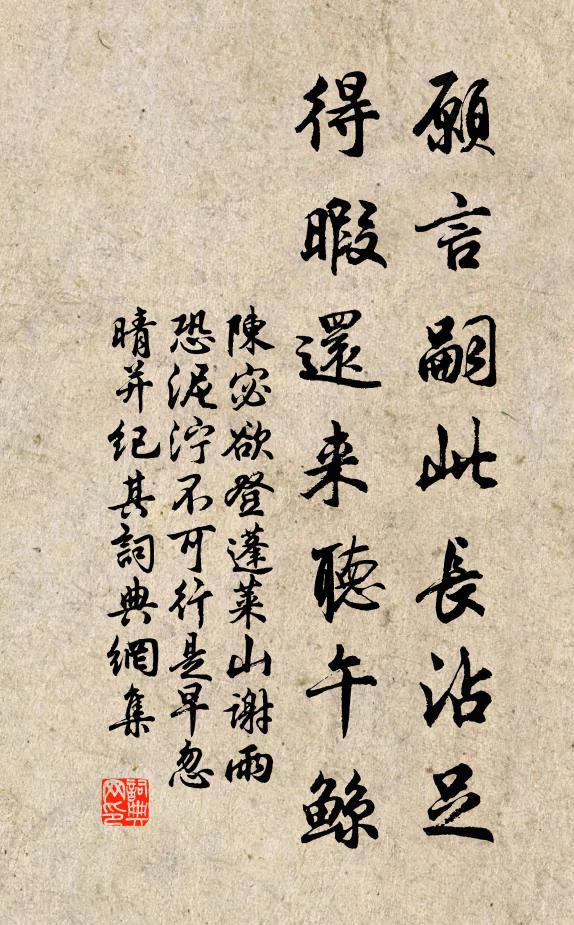 願言嗣此長沾足
得暇還来聽午鯨
陳宓欲登蓬萊山謝雨
恐泥泞不可行是早忽
晴并纪其詞典網集
詞典网印